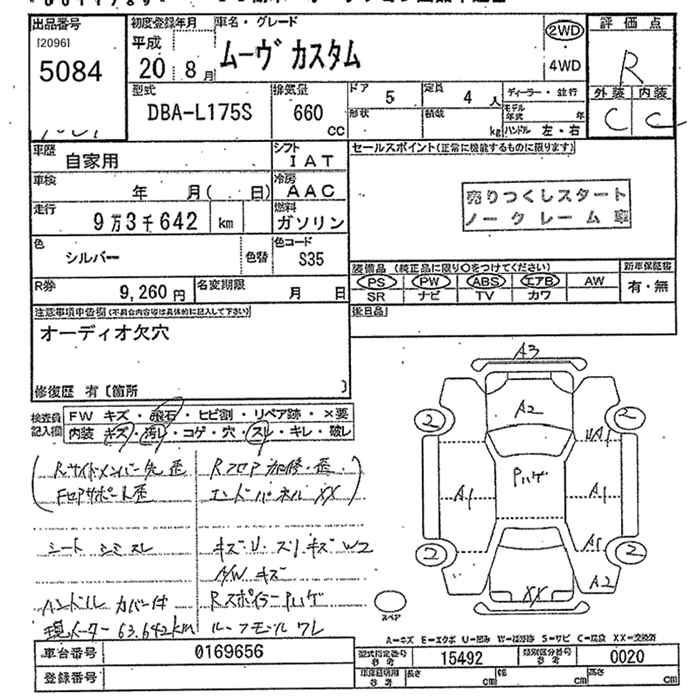 出品番号
[2096]
5084
初度登録年月
平成
20 8月
車名・グレード
ムーヴ カスタム
2WD
4WD
評価点
R
外装 内装
C C
型式
DBA-L175S
排気量
660
CC
ドア 5
定員 4 人
形状
積載 kg
ディーラー・並行
モデル年式 年
ハンドル 左・右
車歴
自家用
シフト
IAT
セールスポイント(正常に機能するものに限ります)
車検
年 月( 日)
冷房
AAC
売りつくしスタート
ノークレーム車
走行
9万3千642 km
燃料
ガソリン
色
シルバー
色替
色コード
S35
装備品 (純正品に限り○をつけてください)
新車保証書
PS PW ABS エアB AW
SR ナビ TV カワ
有・無
R券
9,260円
名変期限
月 日
後日品
注意事項申告欄(不具合内容等は具体的に記入して下さい)
オーディオ欠穴
修復歴 有〔箇所 〕
検査員記入欄
FW キズ・飛石・ヒビ割・リペア跡・×要
内装 キズ・汚レ・コゲ・穴・スレ・キレ・破レ
Rサイドメンバー先歪
Rフロア加修・歪
Fロアサポート歪
エンドパネルXX
シート シミ スレ
キズ・U・スリキズW2
A/W キズ
ハンドル カバー付
Rスポイラー Pハゲ
現メーター 63.642km
ルーフモール ワレ
A3
A2
2 2
UA1
Pハゲ
A1 A1
A1
2 2
A2
XX
スペア
A=キズ E=エクボ U=凹み W=補修跡 S=サビ C=腐食 XX=交換済
車台番号
0169656
型式指定番号
参考
15492
類別区分番号
参考
0020
登録番号
車庫証明用
参考
長さ cm
幅 cm
高さ cm